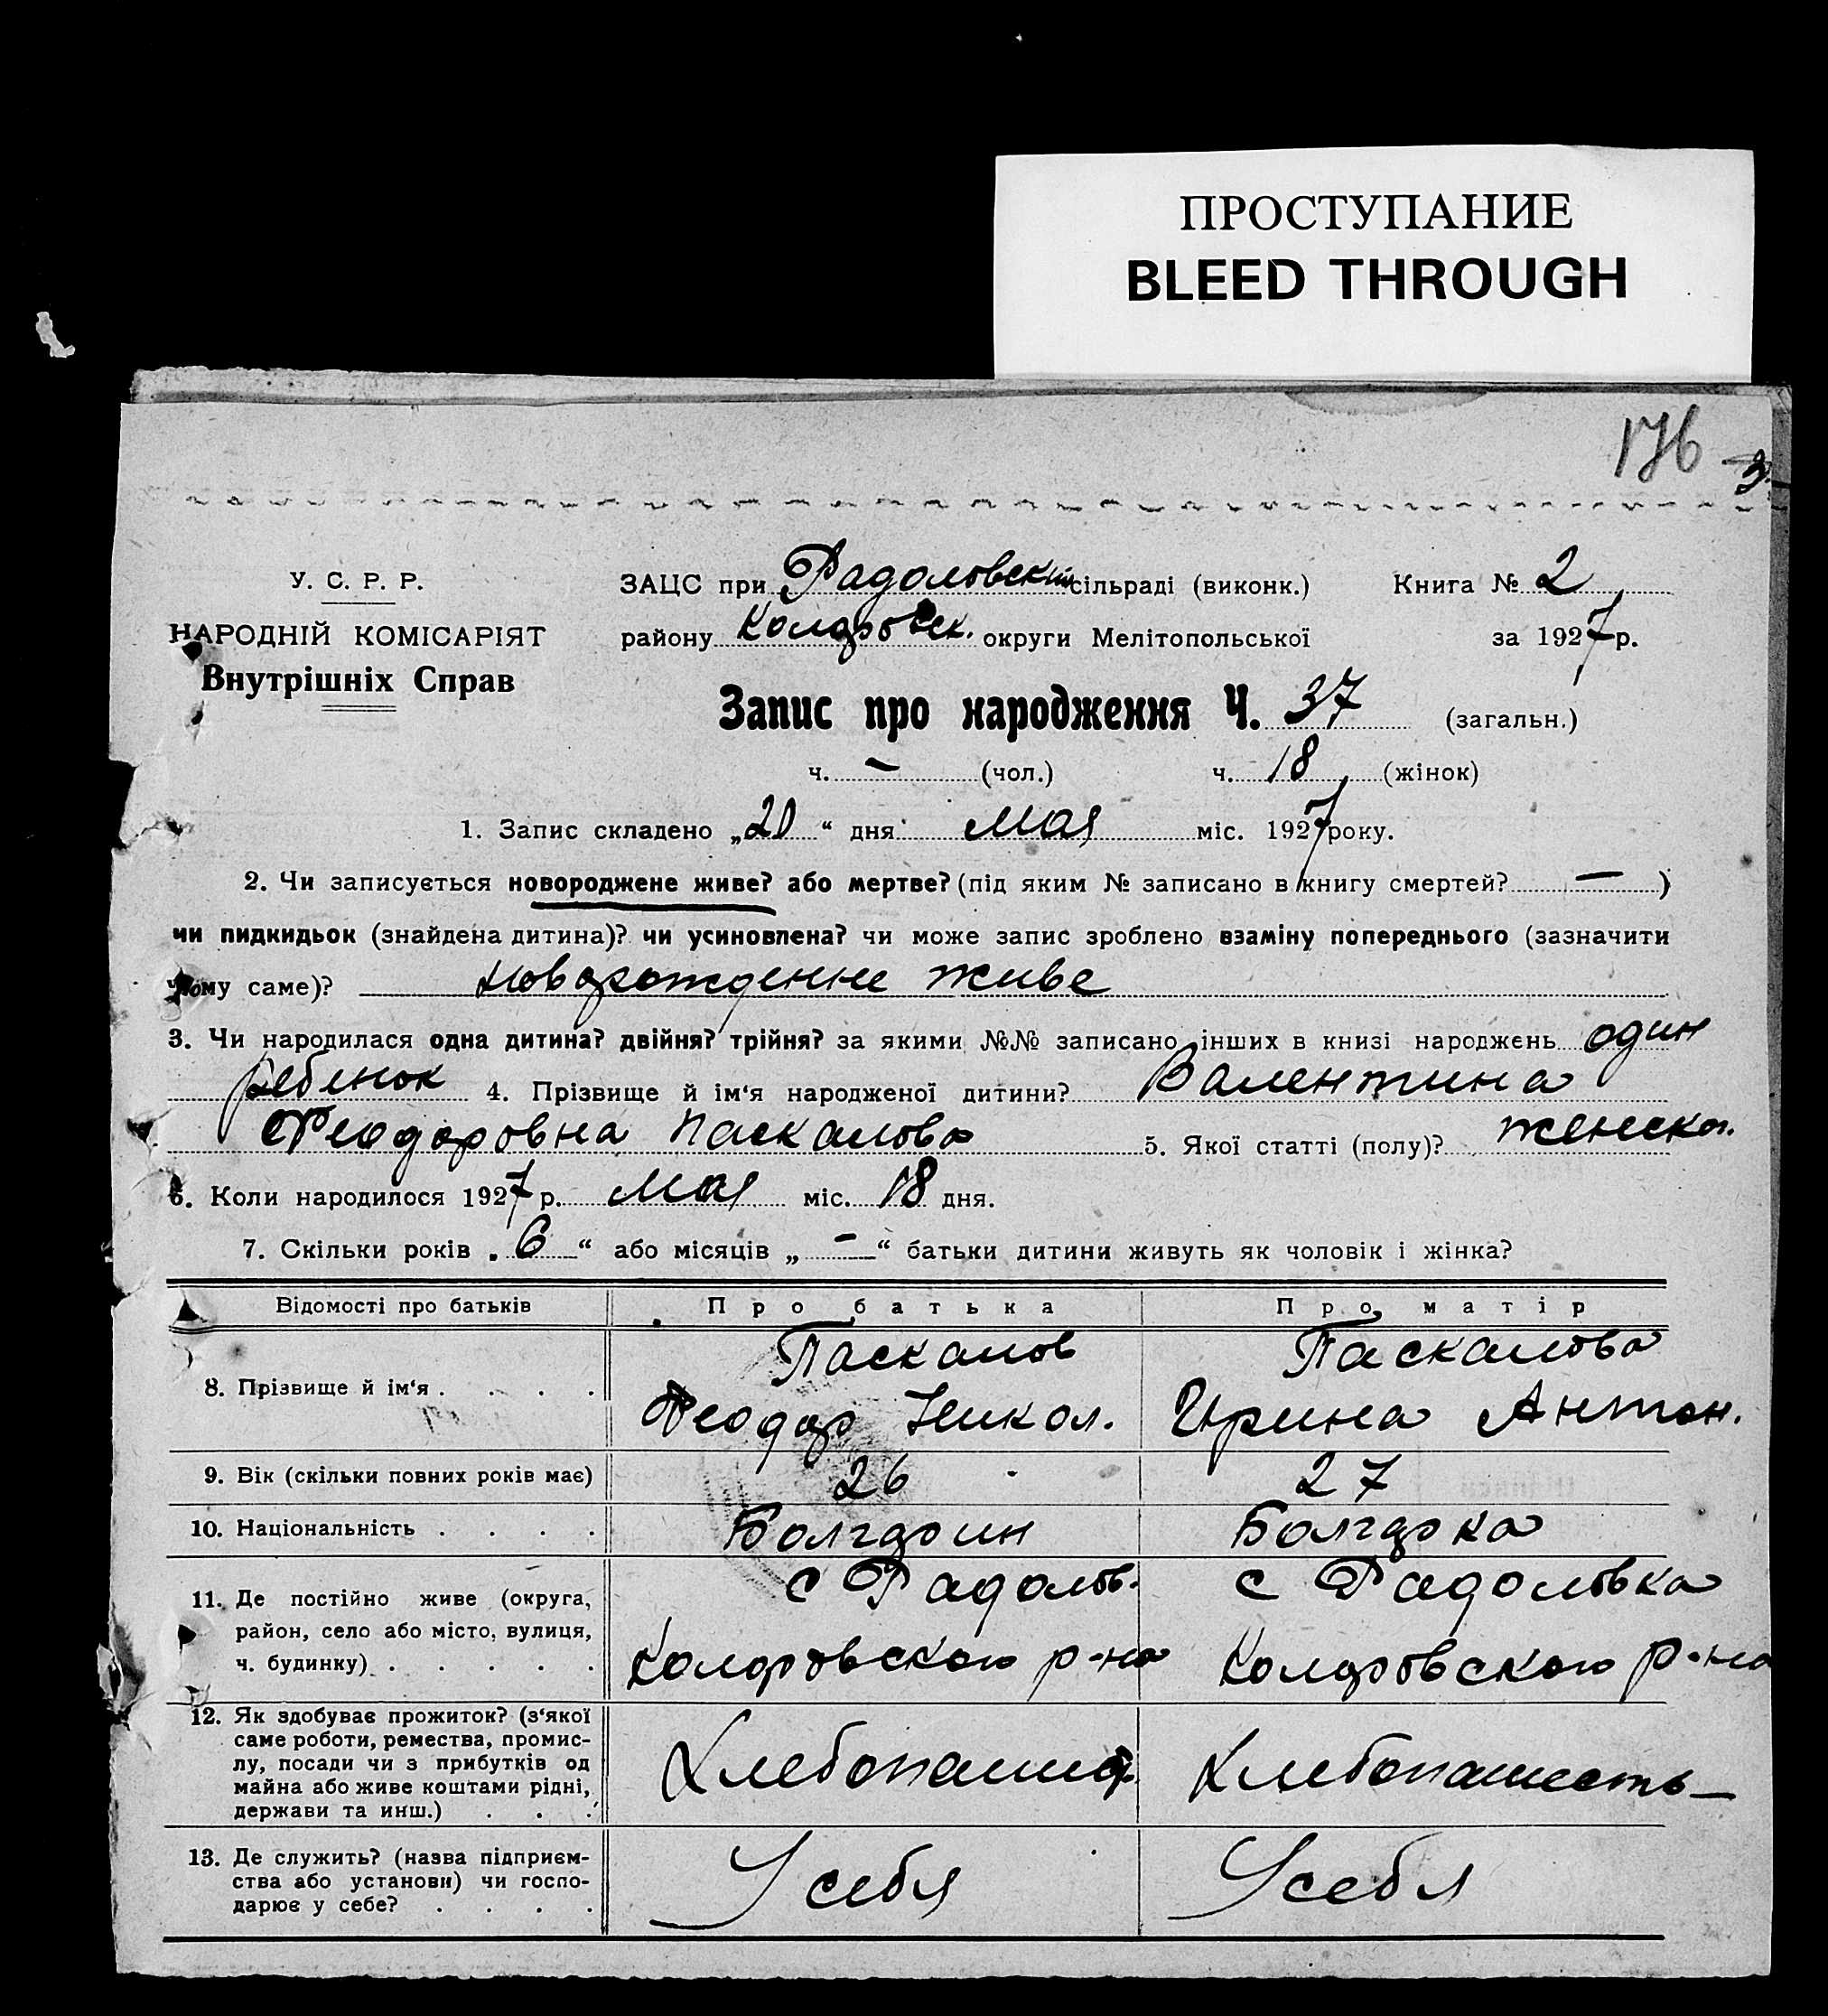 ПРОСТУПАНИЕ
BLEED THROUGH
176
У. С. Р. Р.
НАРОДНІЙ КОМІСАРІЯТ
Внутрішніх Справ
ЗАЦС при Радоловский сільраді (виконк.) Книга № 2
району Коларовск. округи Мелітопольської за 1927 р.
Запис про народження Ч. 37 (загальн.)
ч. — (чол.) ч. 18 (жінок)
1. Запис складено „20“ дня мая міс. 1927 року.
2. Чи записується новороджене живе? або мертве? (під яким № записано в книгу смертей? — )
чи пидкидьок (знайдена дитина)? чи усиновлена? чи може запис зроблено взаміну попереднього (зазначити
чому саме)? новорожденне живе
3. Чи народилася одна дитина? двійня? трійня? за якими №№ записано інших в книзі народжень один
ребенок 4. Прізвище й ім‘я народженої дитини? Валентина
Феодоровна Паскалова 5. Якої статті (полу)? женск.
6. Коли народилося 1927 р. мая міс. 18 дня.
7. Скільки років „6“ або місяців „—“ батьки дитини живуть як чоловік і жінка?
Відомості про батьків Про батька Про матір
8. Прізвище й ім‘я . . . . Паскалов Паскалова
Феодор Никол. Ирина Антон.
9. Вік (скільки повних років має) 26 27
10. Національність . . . . Болгарин Болгарка
11. Де постійно живе (округа, с Радолов. с Радоловка
район, село або місто, вулиця,
ч. будинку) . . . . . Коларовского р-на Коларовского р-на
12. Як здобуває прожиток? (з‘якої
саме роботи, ремества, промис-
лу, посади чи з прибутків од Хлебопашец Хлебопашесть
майна або живе коштами рідні,
держави та инш.) . . .
13. Де служить? (назва підприєм-
ства або установи) чи госпо- У себя У себя
дарює у себе? . . . .